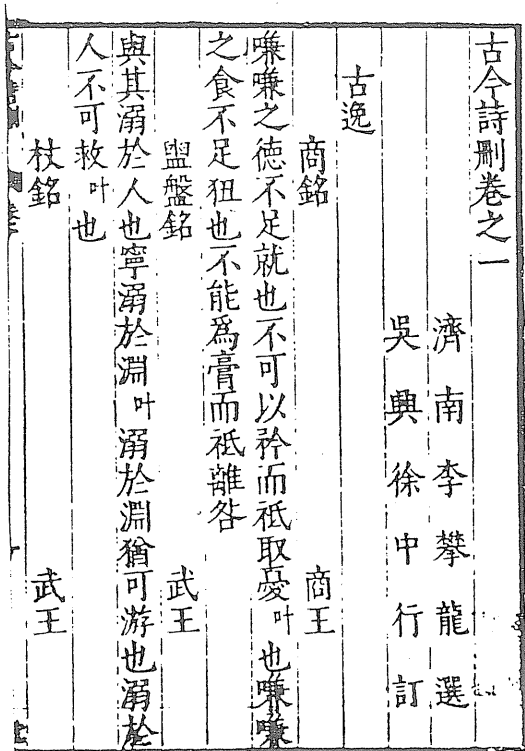 古今詩刪卷之一
濟南李攀龍選
吳興徐中行訂
古逸
商銘 商王
嗛嗛之德不足就也不可以矜而祗取憂叶也嗛嗛
之食不足狃也不能爲膏而祗離咎
盥盤銘 武王
與其溺於人也寧溺於淵叶溺於淵猶可游也溺於
人不可救叶也
杖銘 武王